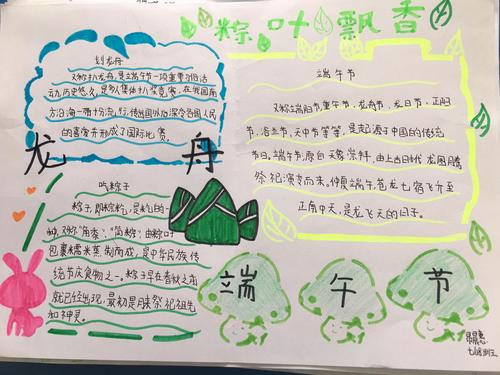 粽叶飘香
划龙舟
又称扒龙舟,是端午节一项重要习俗活
动,历史悠久,是多人集体扒桨竞赛,在我国南
方沿海一带十分流行,传出国外后深受各国人民
的喜爱并形成了国际比赛。
龙舟
端午节
又称端阳节重午节,龙舟节,龙日节,正阳
节,浴兰节,天中节等等,是起源于中国的传统
节日。端午节源自天象崇拜,由上古时代龙图腾
祭祀演变而来。仲夏端午,苍龙七宿飞升至
正南中天,是龙飞天的日子。
吃粽子
粽子,即粽籺,是籺的一
种,又称"角黍""筒粽",由粽叶
包裹糯米蒸制而成,是中华民族传
统节庆食物之一。粽子早在春秋之前
就已经出现,最初是用来祭祀祖先
和神灵。
端午节